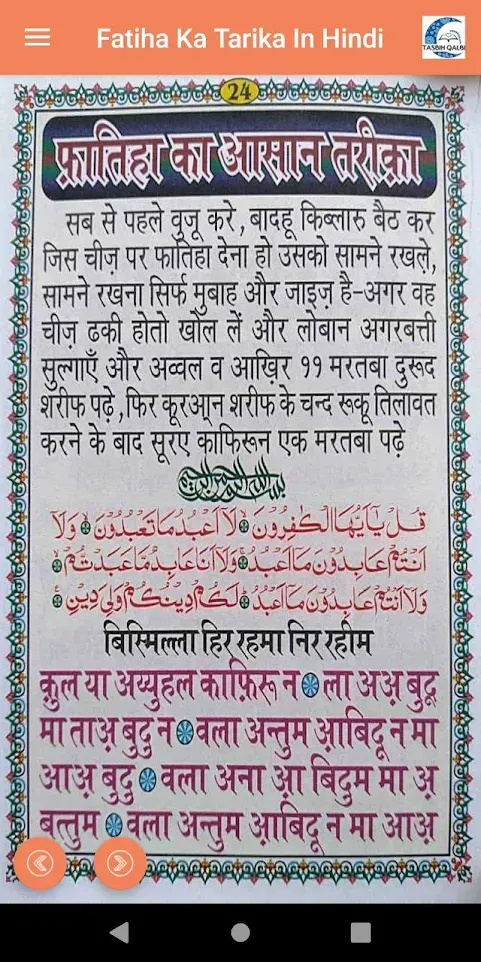 Fatiha Ka Tarika In Hindi
TASBIH QALBI
24
फ़ातिहा का आसान तरीक़ा
सब से पहले वुजू करे, बादहू किब्लारु बैठ कर
जिस चीज़ पर फातिहा देना हो उसको सामने रखले,
सामने रखना सिर्फ मुबाह और जाइज़ है-अगर वह
चीज़ ढकी होतो खोल लें और लोबान अगरबत्ती
सुल्गाएँ और अव्वल व आख़िर ११ मरतबा दुरूद
शरीफ पढ़े, फिर कूरआ्न शरीफ के चन्द रूकू तिलावत
करने के बाद सूरए काफिरून एक मरतबा पढ़े
بسم الله الرحمن الرحيم
قُلْ يٰٓاَيُّهَا الْكٰفِرُوْنَ لَآ اَعْبُدُ مَا تَعْبُدُوْنَ وَلَآ
اَنْتُمْ عَابِدُوْنَ مَآ اَعْبُدُ وَلَآ اَنَا عَابِدٌ مَّا عَبَدْتُّمْ
وَلَآ اَنْتُمْ عَابِدُوْنَ مَآ اَعْبُدُ لَكُمْ دِيْنُكُمْ وَلِيَ دِيْنِ
बिस्मिल्ला हिर रहमा निर रहीम
क़ुल या अय्युहल काफ़िरू न ला अअ़ बुदू
मा ताअ़ बुदु न वला अन्तुम आ़बिदू न मा
आअ़ बुदु वला अना आ़ बिदुम मा अ़
बत्तुम वला अन्तुम आ़बिदू न मा आअ़